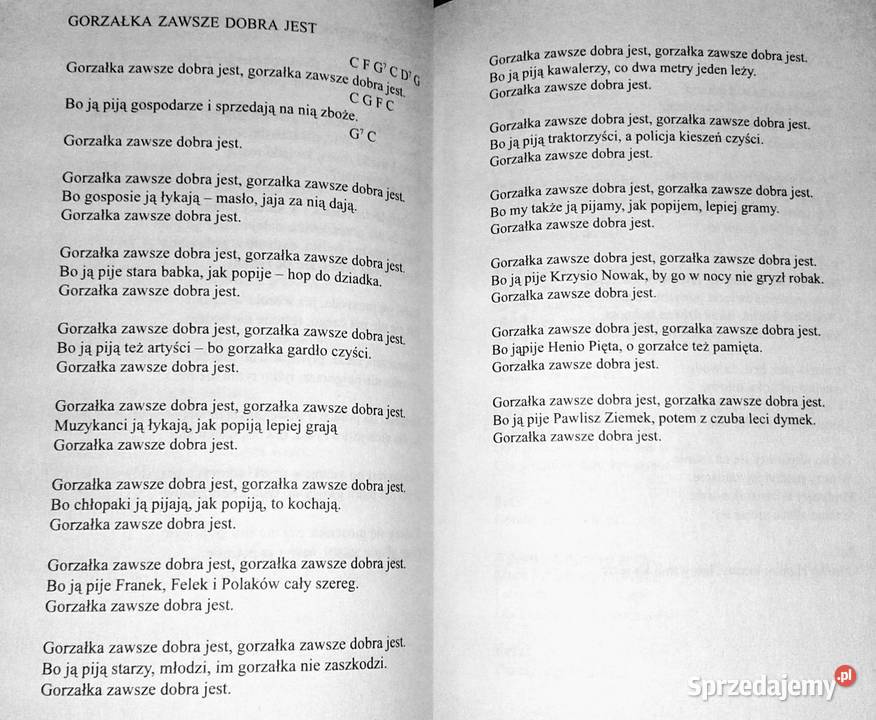 GORZAŁKA ZAWSZE DOBRA JEST
C F G⁷ C D⁷ G
Gorzałka zawsze dobra jest, gorzałka zawsze dobra jest.
C G F C
Bo ją piją gospodarze i sprzedają na nią zboże.
G⁷ C
Gorzałka zawsze dobra jest.
Gorzałka zawsze dobra jest, gorzałka zawsze dobra jest.
Bo gosposie ją łykają – masło, jaja za nią dają.
Gorzałka zawsze dobra jest.
Gorzałka zawsze dobra jest, gorzałka zawsze dobra jest.
Bo ją pije stara babka, jak popije – hop do dziadka.
Gorzałka zawsze dobra jest.
Gorzałka zawsze dobra jest, gorzałka zawsze dobra jest.
Bo ją piją też artyści – bo gorzałka gardło czyści.
Gorzałka zawsze dobra jest.
Gorzałka zawsze dobra jest, gorzałka zawsze dobra jest.
Muzykanci ją łykają, jak popiją lepiej grają
Gorzałka zawsze dobra jest.
Gorzałka zawsze dobra jest, gorzałka zawsze dobra jest.
Bo chłopaki ją pijają, jak popiją, to kochają.
Gorzałka zawsze dobra jest.
Gorzałka zawsze dobra jest, gorzałka zawsze dobra jest.
Bo ją pije Franek, Felek i Polaków cały szereg.
Gorzałka zawsze dobra jest.
Gorzałka zawsze dobra jest, gorzałka zawsze dobra jest.
Bo ją piją starzy, młodzi, im gorzałka nie zaszkodzi.
Gorzałka zawsze dobra jest.
Gorzałka zawsze dobra jest, gorzałka zawsze dobra jest.
Bo ją piją kawalerzy, co dwa metry jeden leży.
Gorzałka zawsze dobra jest.
Gorzałka zawsze dobra jest, gorzałka zawsze dobra jest.
Bo ją piją traktorzyści, a policja kieszeń czyści.
Gorzałka zawsze dobra jest.
Gorzałka zawsze dobra jest, gorzałka zawsze dobra jest.
Bo my także ją pijamy, jak popijem, lepiej gramy.
Gorzałka zawsze dobra jest.
Gorzałka zawsze dobra jest, gorzałka zawsze dobra jest.
Bo ją pije Krzysio Nowak, by go w nocy nie gryzł robak.
Gorzałka zawsze dobra jest.
Gorzałka zawsze dobra jest, gorzałka zawsze dobra jest.
Bo jąpije Henio Pięta, o gorzałce też pamięta.
Gorzałka zawsze dobra jest.
Gorzałka zawsze dobra jest, gorzałka zawsze dobra jest.
Bo ją pije Pawlisz Ziemek, potem z czuba leci dymek.
Gorzałka zawsze dobra jest.
Sprzedajemy.pl